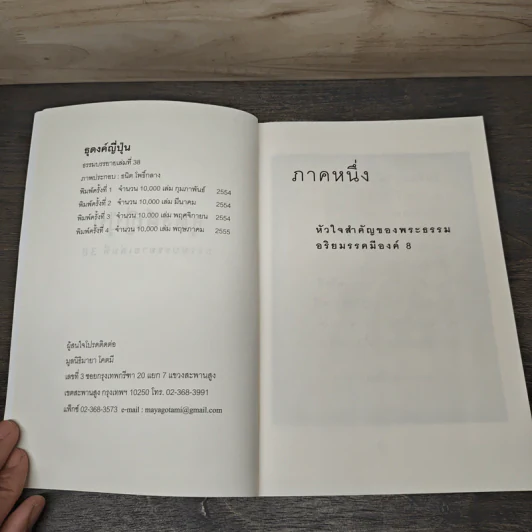 ธุดงค์ญี่ปุ่น
ธรรมบรรยายเล่มที่ 38
ภาพประกอบ : ธนิต โพธิ์กลาง
พิมพ์ครั้งที่ 1 จำนวน 10,000 เล่ม กุมภาพันธ์ 2554
พิมพ์ครั้งที่ 2 จำนวน 10,000 เล่ม มีนาคม 2554
พิมพ์ครั้งที่ 3 จำนวน 10,000 เล่ม พฤศจิกายน 2554
พิมพ์ครั้งที่ 4 จำนวน 10,000 เล่ม พฤษภาคม 2555
ผู้สนใจโปรดติดต่อ
มูลนิธิมายา โคตมี
เลขที่ 3 ซอยกรุงเทพกรีฑา 20 แยก 7 แขวงสะพานสูง
เขตสะพานสูง กรุงเทพฯ 10250 โทร. 02-368-3991
แฟ็กซ์ 02-368-3573 e-mail : mayagotami@gmail.com
ภาคหนึ่ง
หัวใจสำคัญของพระธรรม
อริยมรรคมีองค์ 8